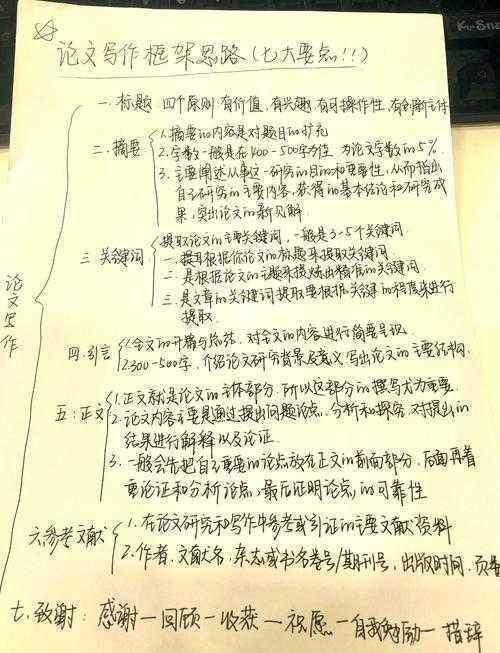 论文写作框架思路(七大要点!!!)
论文写作
一.标题 四个原则:有价值,有兴趣,有可操作性,有创新立体
二.摘要
1.摘要的内容是对题目的扩充
2.字数一般是在400-500字为佳,为论文字数的5%.
3.主要阐述从事这一研究的目的和重要性,从而指出
自己研究的主要内容,获得的基本结论和研究成
果,突出论文的新见解.
三 关键词
提取论文的主要关键词,一般是3-5个关键词
一.提取根据你论文的标题来提取关键词.
二.是根据论文的主题来提炼出精准的关键词.
三.是文章的关键词提取要根据关键的程度来进行
提取.
四.引言
1.全文的开篇与总结,对全文的内容进行简要呈现.
2.300-500字,介绍论文研究背景及意义,写出论文的主要结构.
五:正文
1.正文就是论文的主体部分,所以这部分的撰写尤为重要.
2.论文内容主要是通过提出问题论点,分析和探究,对提出的
结果进行解释以及论证.
3.一般会先把自己重要的论点放在正文的前面部分,后面再着
重论证和分析论点,最后证明论点的可靠性
六.参考文献
1.在论文研究和写作中参考或引证的主要文献资料
2.作者,文献名,杂志或书名卷号/期刊号,出版时间,页
七.致谢: 感谢一回顾一收获一祝愿一自我勉励一措辞